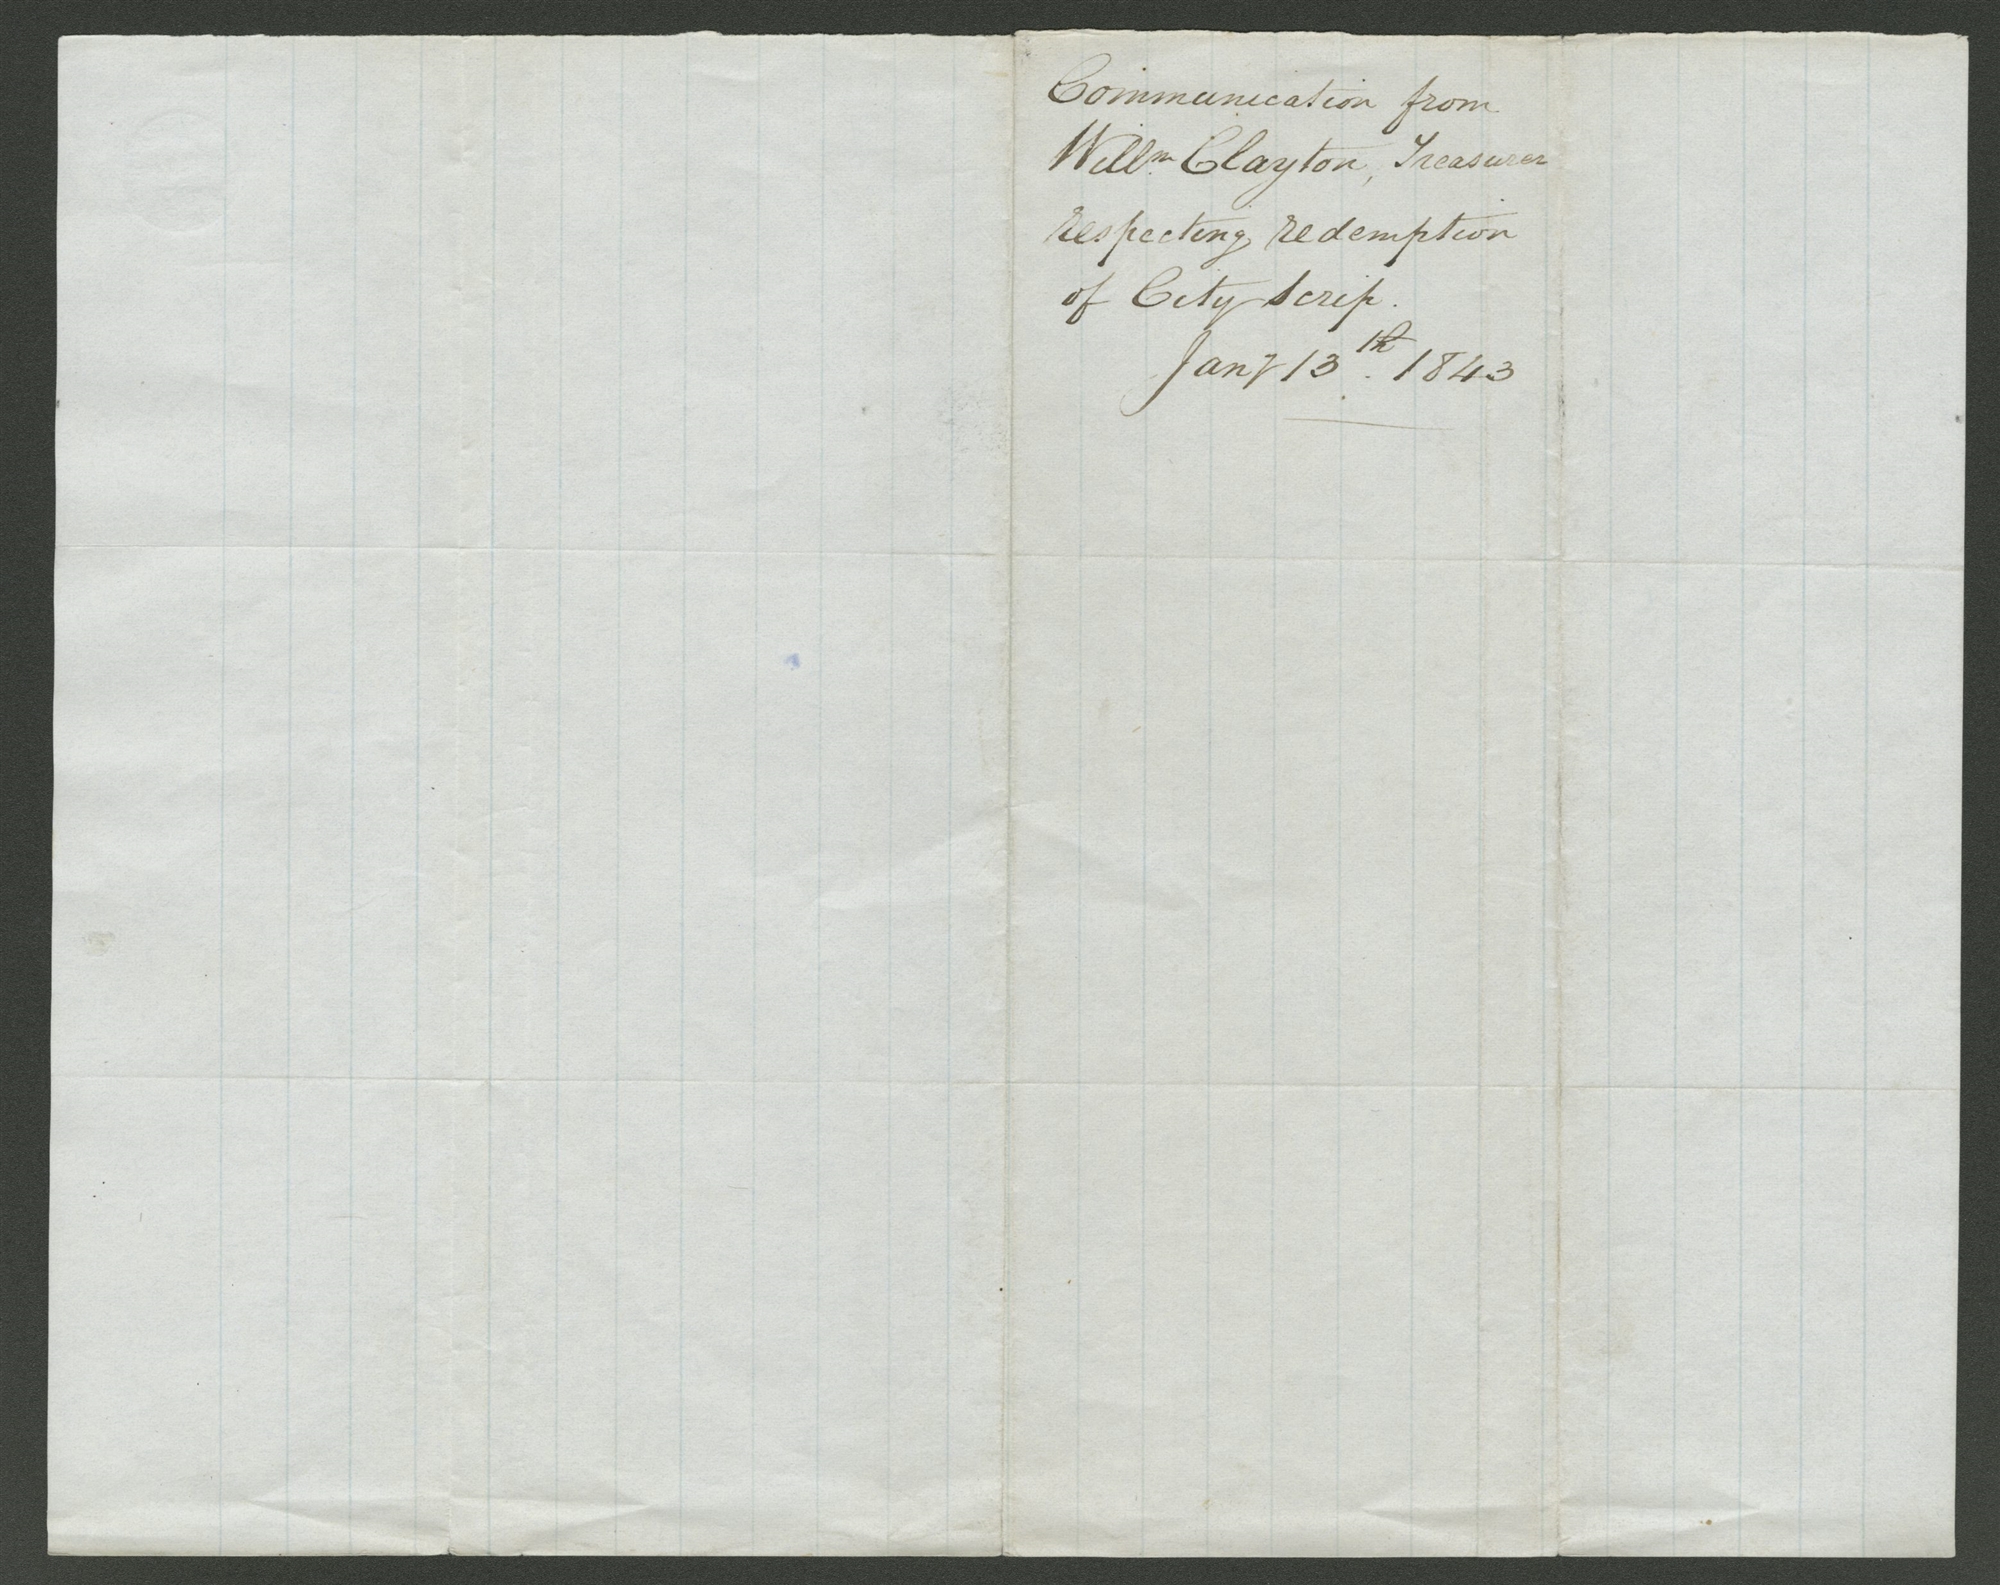 Communication from
Willm. Clayton, Treasurer
respecting redemption
of City Scrip.
Jany 13th. 1843